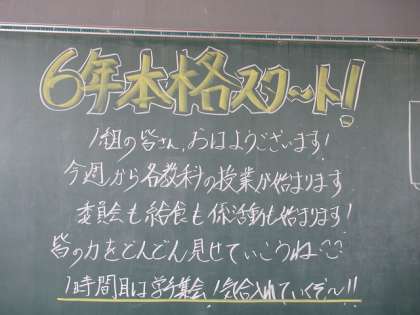 6年本格スタート!
1組の皆さん、おはようございます!
今週から各教科の授業が始まります
委員会も給食も係活動も始まります!
皆の力をどんどん見せていこうね
1時間目は学年集会!気合入れていくぞ〜!!